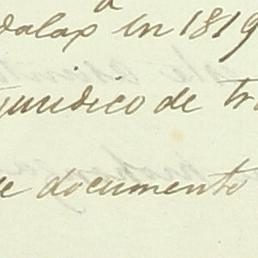 dalax in 1819
juridico de tr
e documento